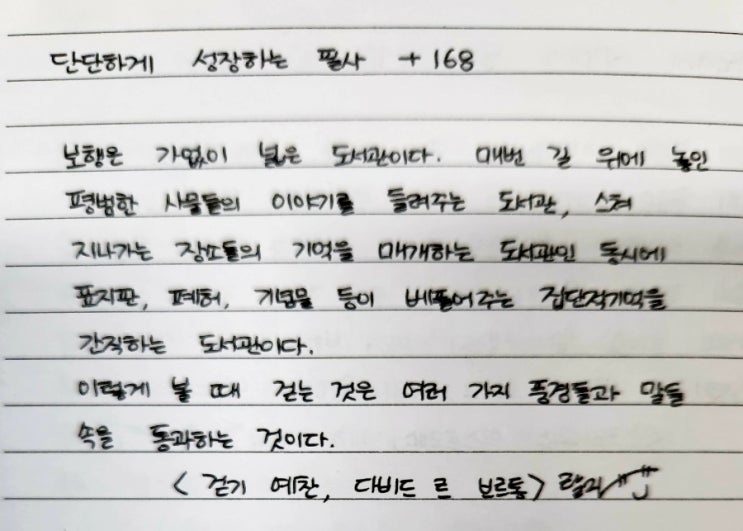 단단하게 성장하는 필사 +168
보행은 가없이 넓은 도서관이다. 매번 길 위에 놓인
평범한 사물들의 이야기를 들려주는 도서관, 스쳐
지나가는 장소들의 기억을 매개하는 도서관인 동시에
표지판, 폐허, 기념물 등이 베풀어주는 집단적기억을
간직하는 도서관이다.
이렇게 볼 때 걷는 것은 여러 가지 풍경들과 말들
속을 통과하는 것이다.
<걷기 예찬, 다비드 르 브르통>